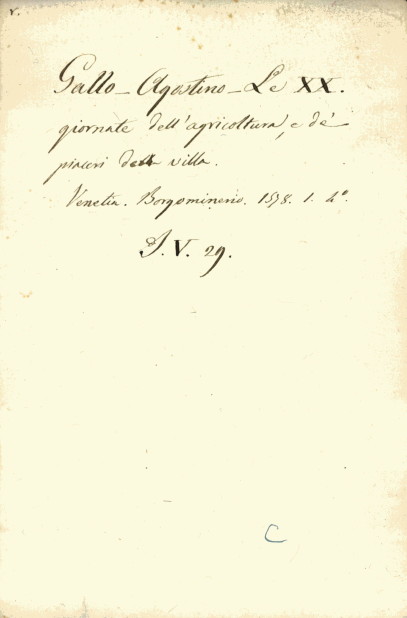 r.
Gallo - Agostino - Le XX.
giornate dell'agricoltura, e de'
piaceri della villa.
Venetia. Borgominerio. 1578. 1. 4º.
J. V. 29.
C